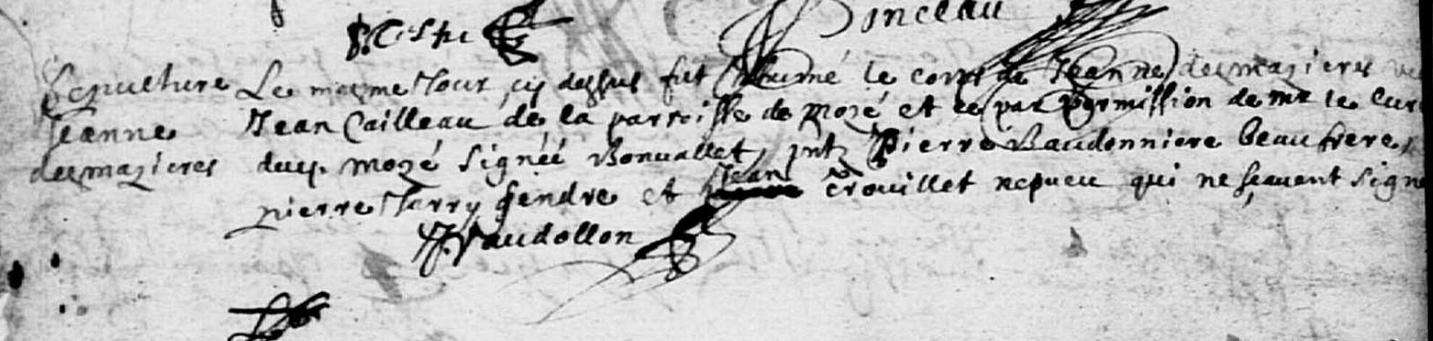 Pinceau
Sepulture
Jeanne
desmazieres
Le mesme Jour cy dessus fut Inhumé le corps de Jeanne desmazieres
Jean Cailleau de la parroisse de Mozé et ce par permission de mr le Curé
dud. Mozé signéé Bonvallet, pnts Pierre Baudonniere beaufrere,
pierre Terry gendre et Jean Crouillet nepveu qui ne sçavent signe